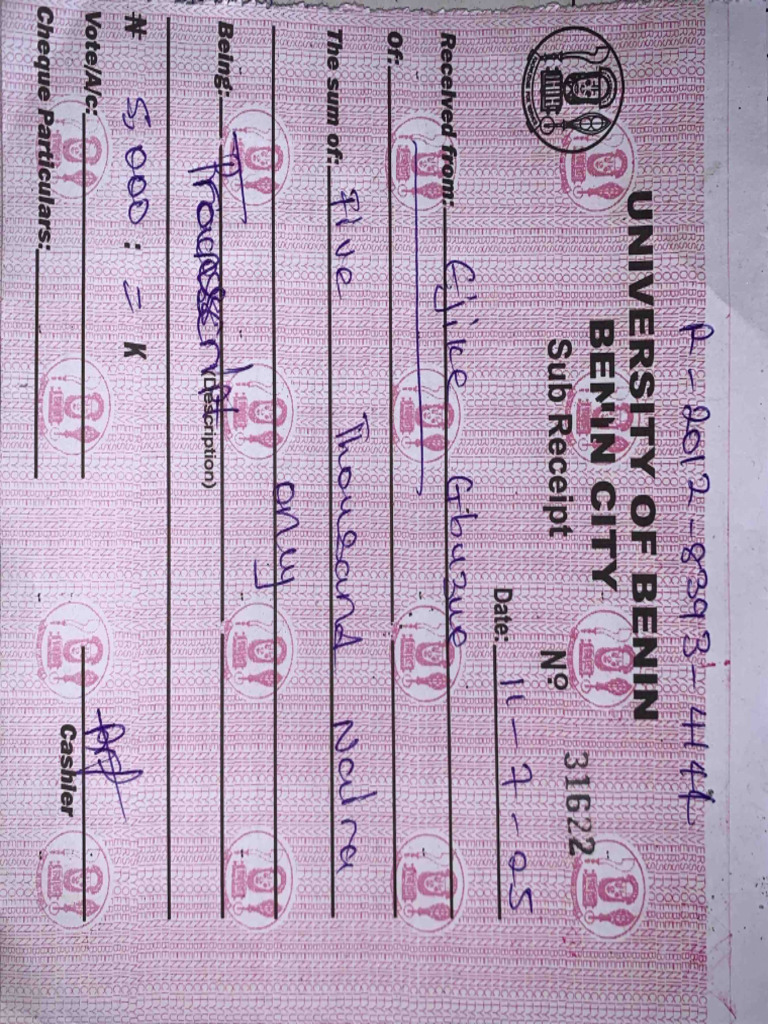 R-2012-8393-4144
UNIVERSITY OF BENIN
BENIN CITY
Sub Receipt Nº 31622
Date: 11-7-25
Received from: Ejike Gbuzue
Of:
The sum of: Five Thousand Naira
only
Being:
(Description)
# 5,000 : = K
Vote/A/c:
Cashier
Cheque Particulars: